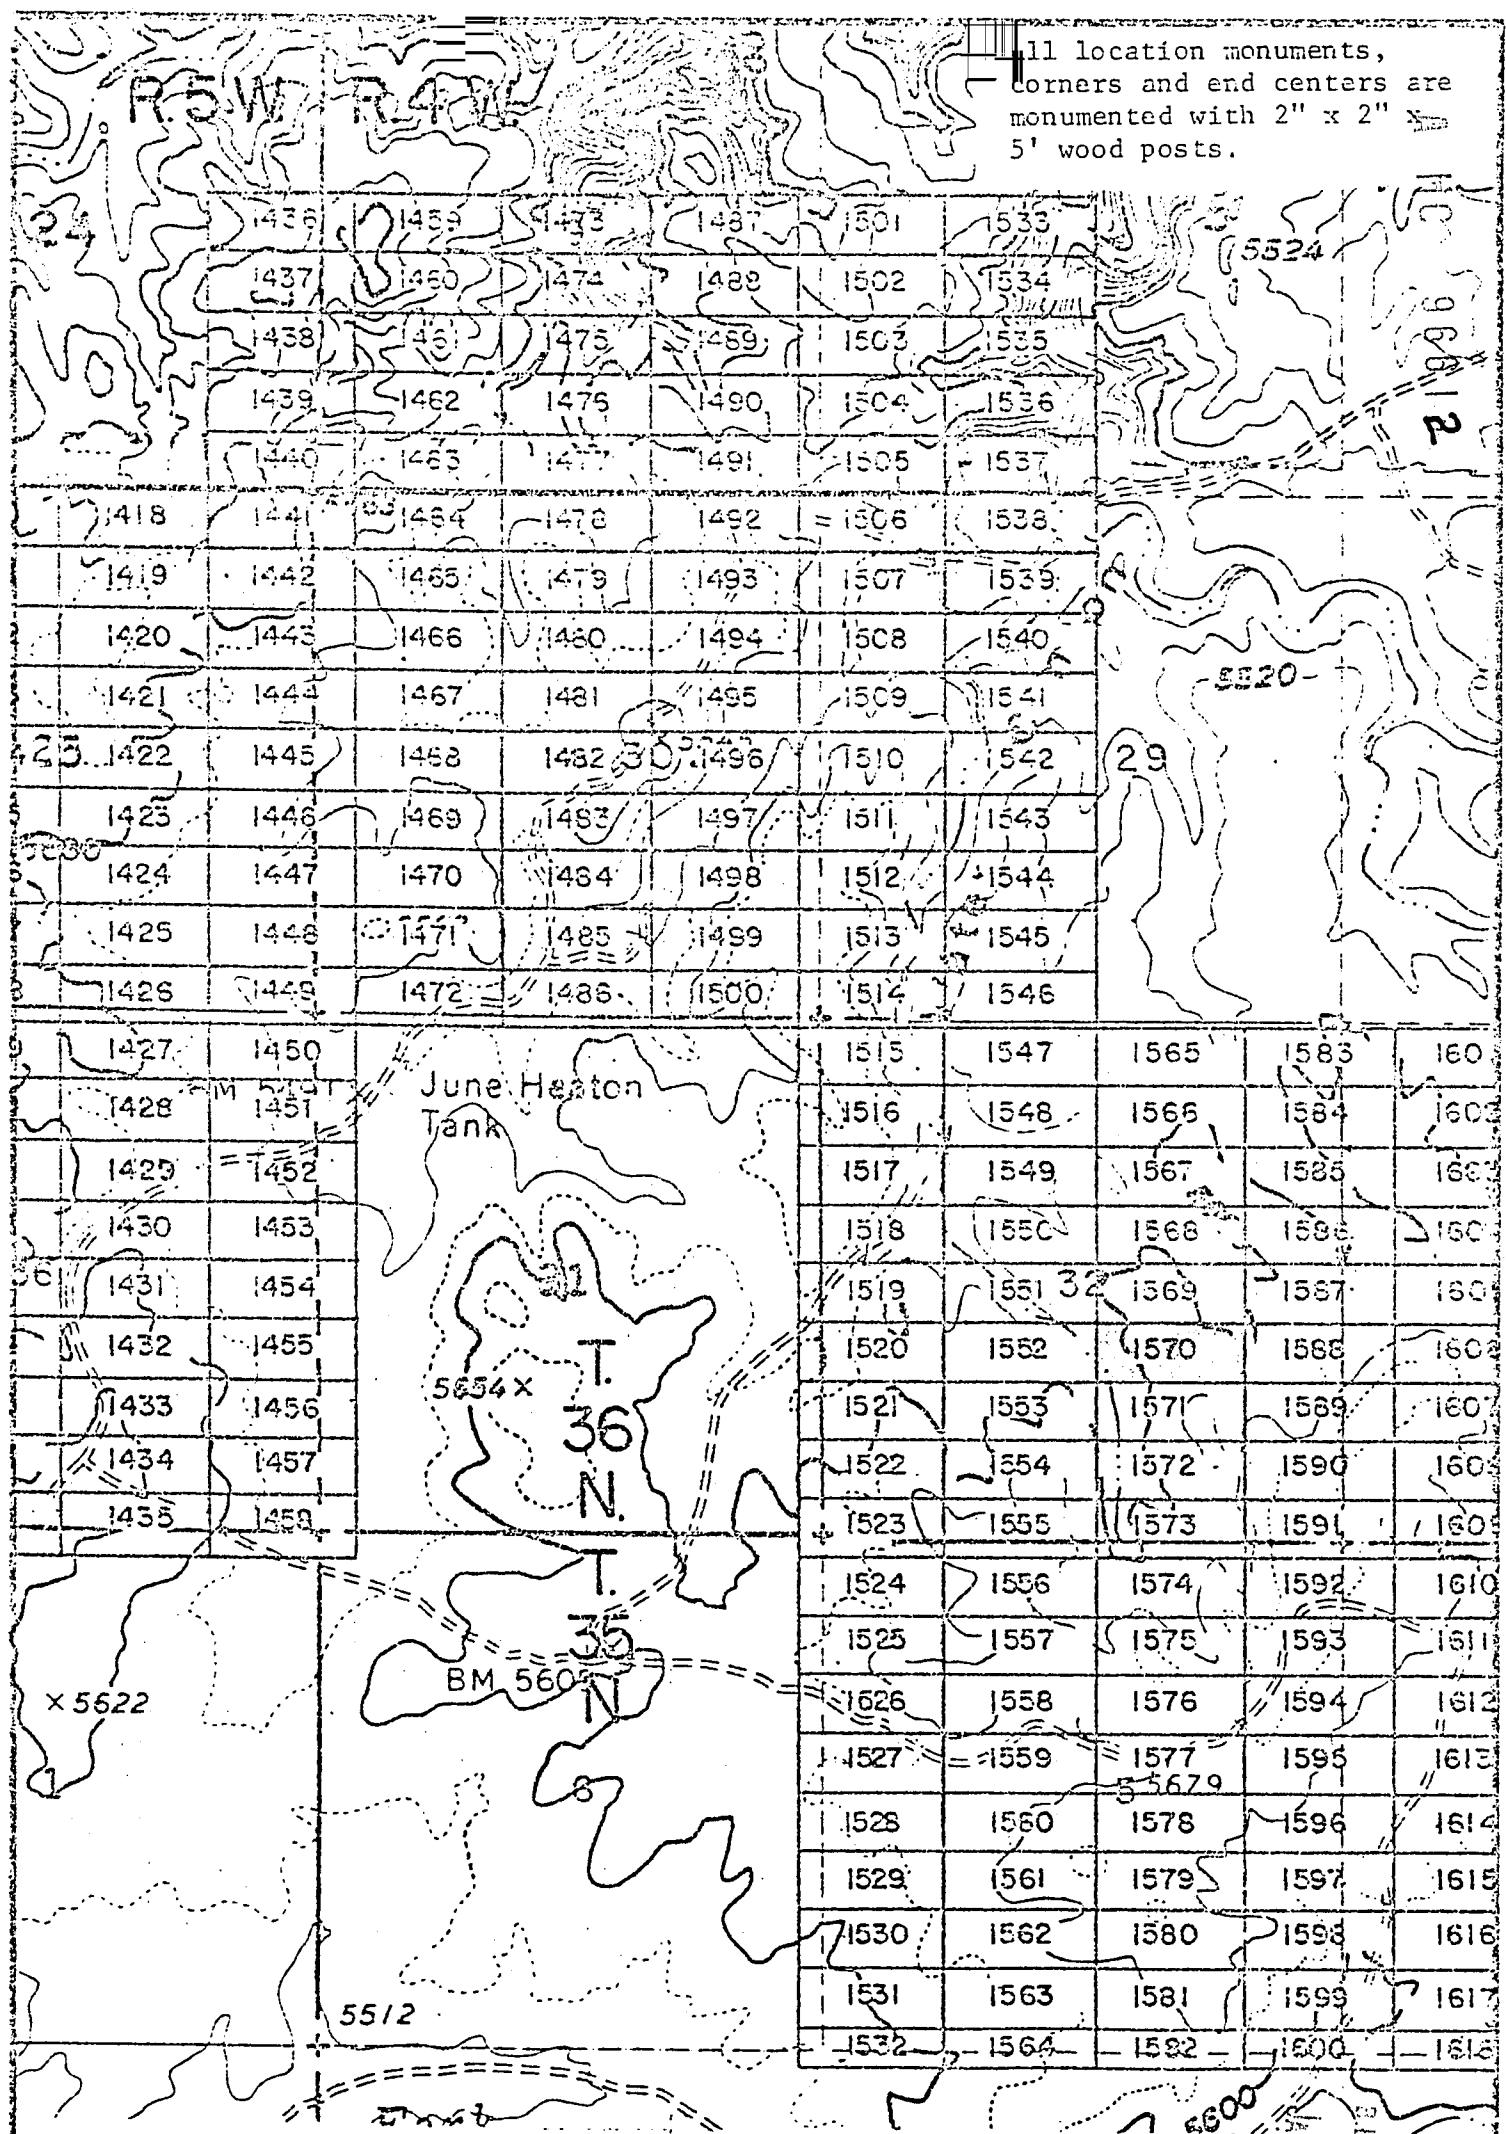 ll location monuments,
corners and end centers are
monumented with 2" x 2" x
5' wood posts.
R.5 W. R.4 W.
24
1436 1459 1473 1487 1501 1533
5524
1437 1460 1474 1488 1502 1534
1438 1461 1475 1489 1503 1535
1439 1462 1476 1490 1504 1536
1440 1463 1477 1491 1505 1537
1418 1441 1464 1478 1492 1506 1538
1419 1442 1465 1479 1493 1507 1539
1420 1443 1466 1480 1494 1508 1540
1421 1444 1467 1481 1495 1509 1541
5520
1422 1445 1468 1482 30 1496 1510 1542 29
1423 1446 1469 1483 1497 1511 1543
1424 1447 1470 1484 1498 1512 1544
1425 1448 1471 1485 1499 1513 1545
1426 1449 1472 1486 1500 1514 1546
1427 1450 1515 1547 1565 1583 160
June Heaton
Tank
1428 1451 1516 1548 1566 1584 160
1429 1452 1517 1549 1567 1585 160
1430 1453 1518 1550 1568 1586 160
1431 1454 1519 1551 32 1569 1587 160
1432 1455 1520 1552 1570 1588 160
5654 x
1433 1456 1521 1553 1571 1589 160
1434 1457 1522 1554 1572 1590 160
1435 1458 1523 1555 1573 1591 160
T.
36
N.
T.
35
N
1524 1556 1574 1592 1610
1525 1557 1575 1593 1611
BM 560
x 5622
1526 1558 1576 1594 1612
1527 1559 1577 1595 1613
5 5679
6
1528 1560 1578 1596 1614
1529 1561 1579 1597 1615
1530 1562 1580 1598 1616
1531 1563 1581 1599 1617
5512
1532 1564 1582 1600 1618
5600